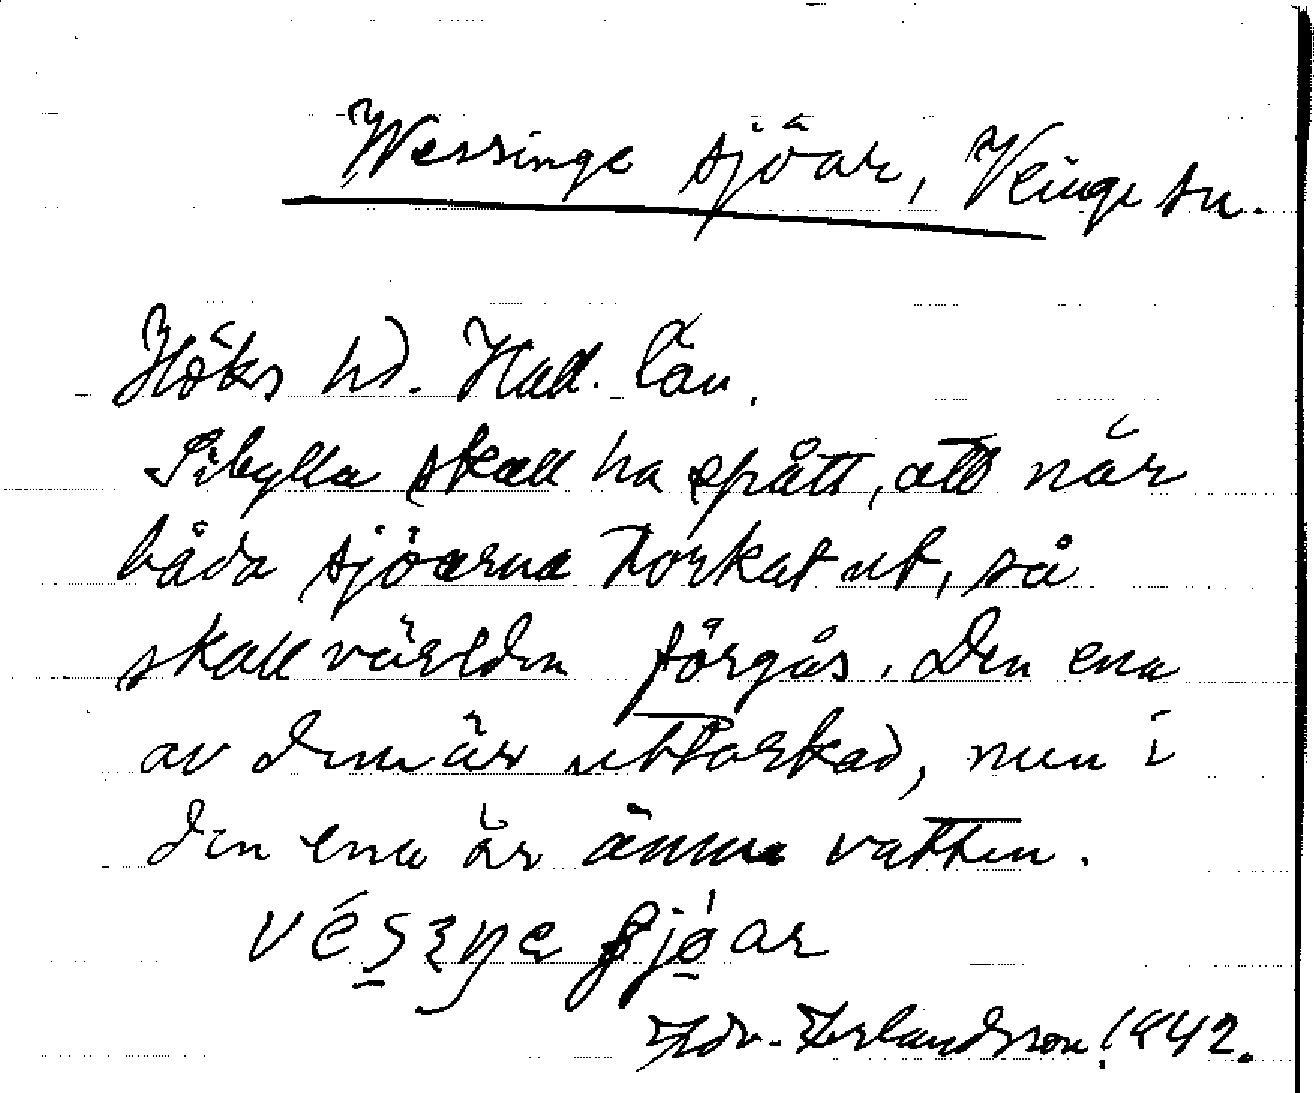 Wessinge sjöar, Veinge sn.
Höks hd. Hall. län.
Sibylla skall ha spått, att när
båda sjöarna torkat ut, så
skall världen förgås. Den ena
av dem är uttorkad, men i
den ena är ännu vatten.
sjöar
Edv. Erlandsson. 1942.